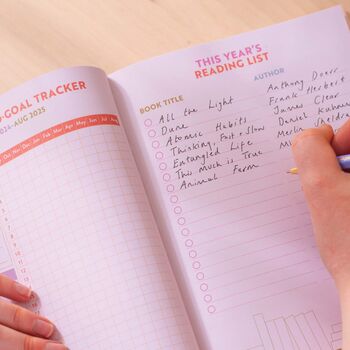 -GOAL TRACKER
2024-AUG 2025
Oct Nov Dec Jan Feb Mar Apr May Jun Jul Aug
THIS YEAR'S
READING LIST
BOOK TITLE AUTHOR
All the Light Anthony Doerr
Dune Frank Herbert
Atomic Habits James Clear
Thinking, Fast & Slow Daniel Kahne
Entangled Life Merlin Sheldra
This Much is True Mi
Animal Farm